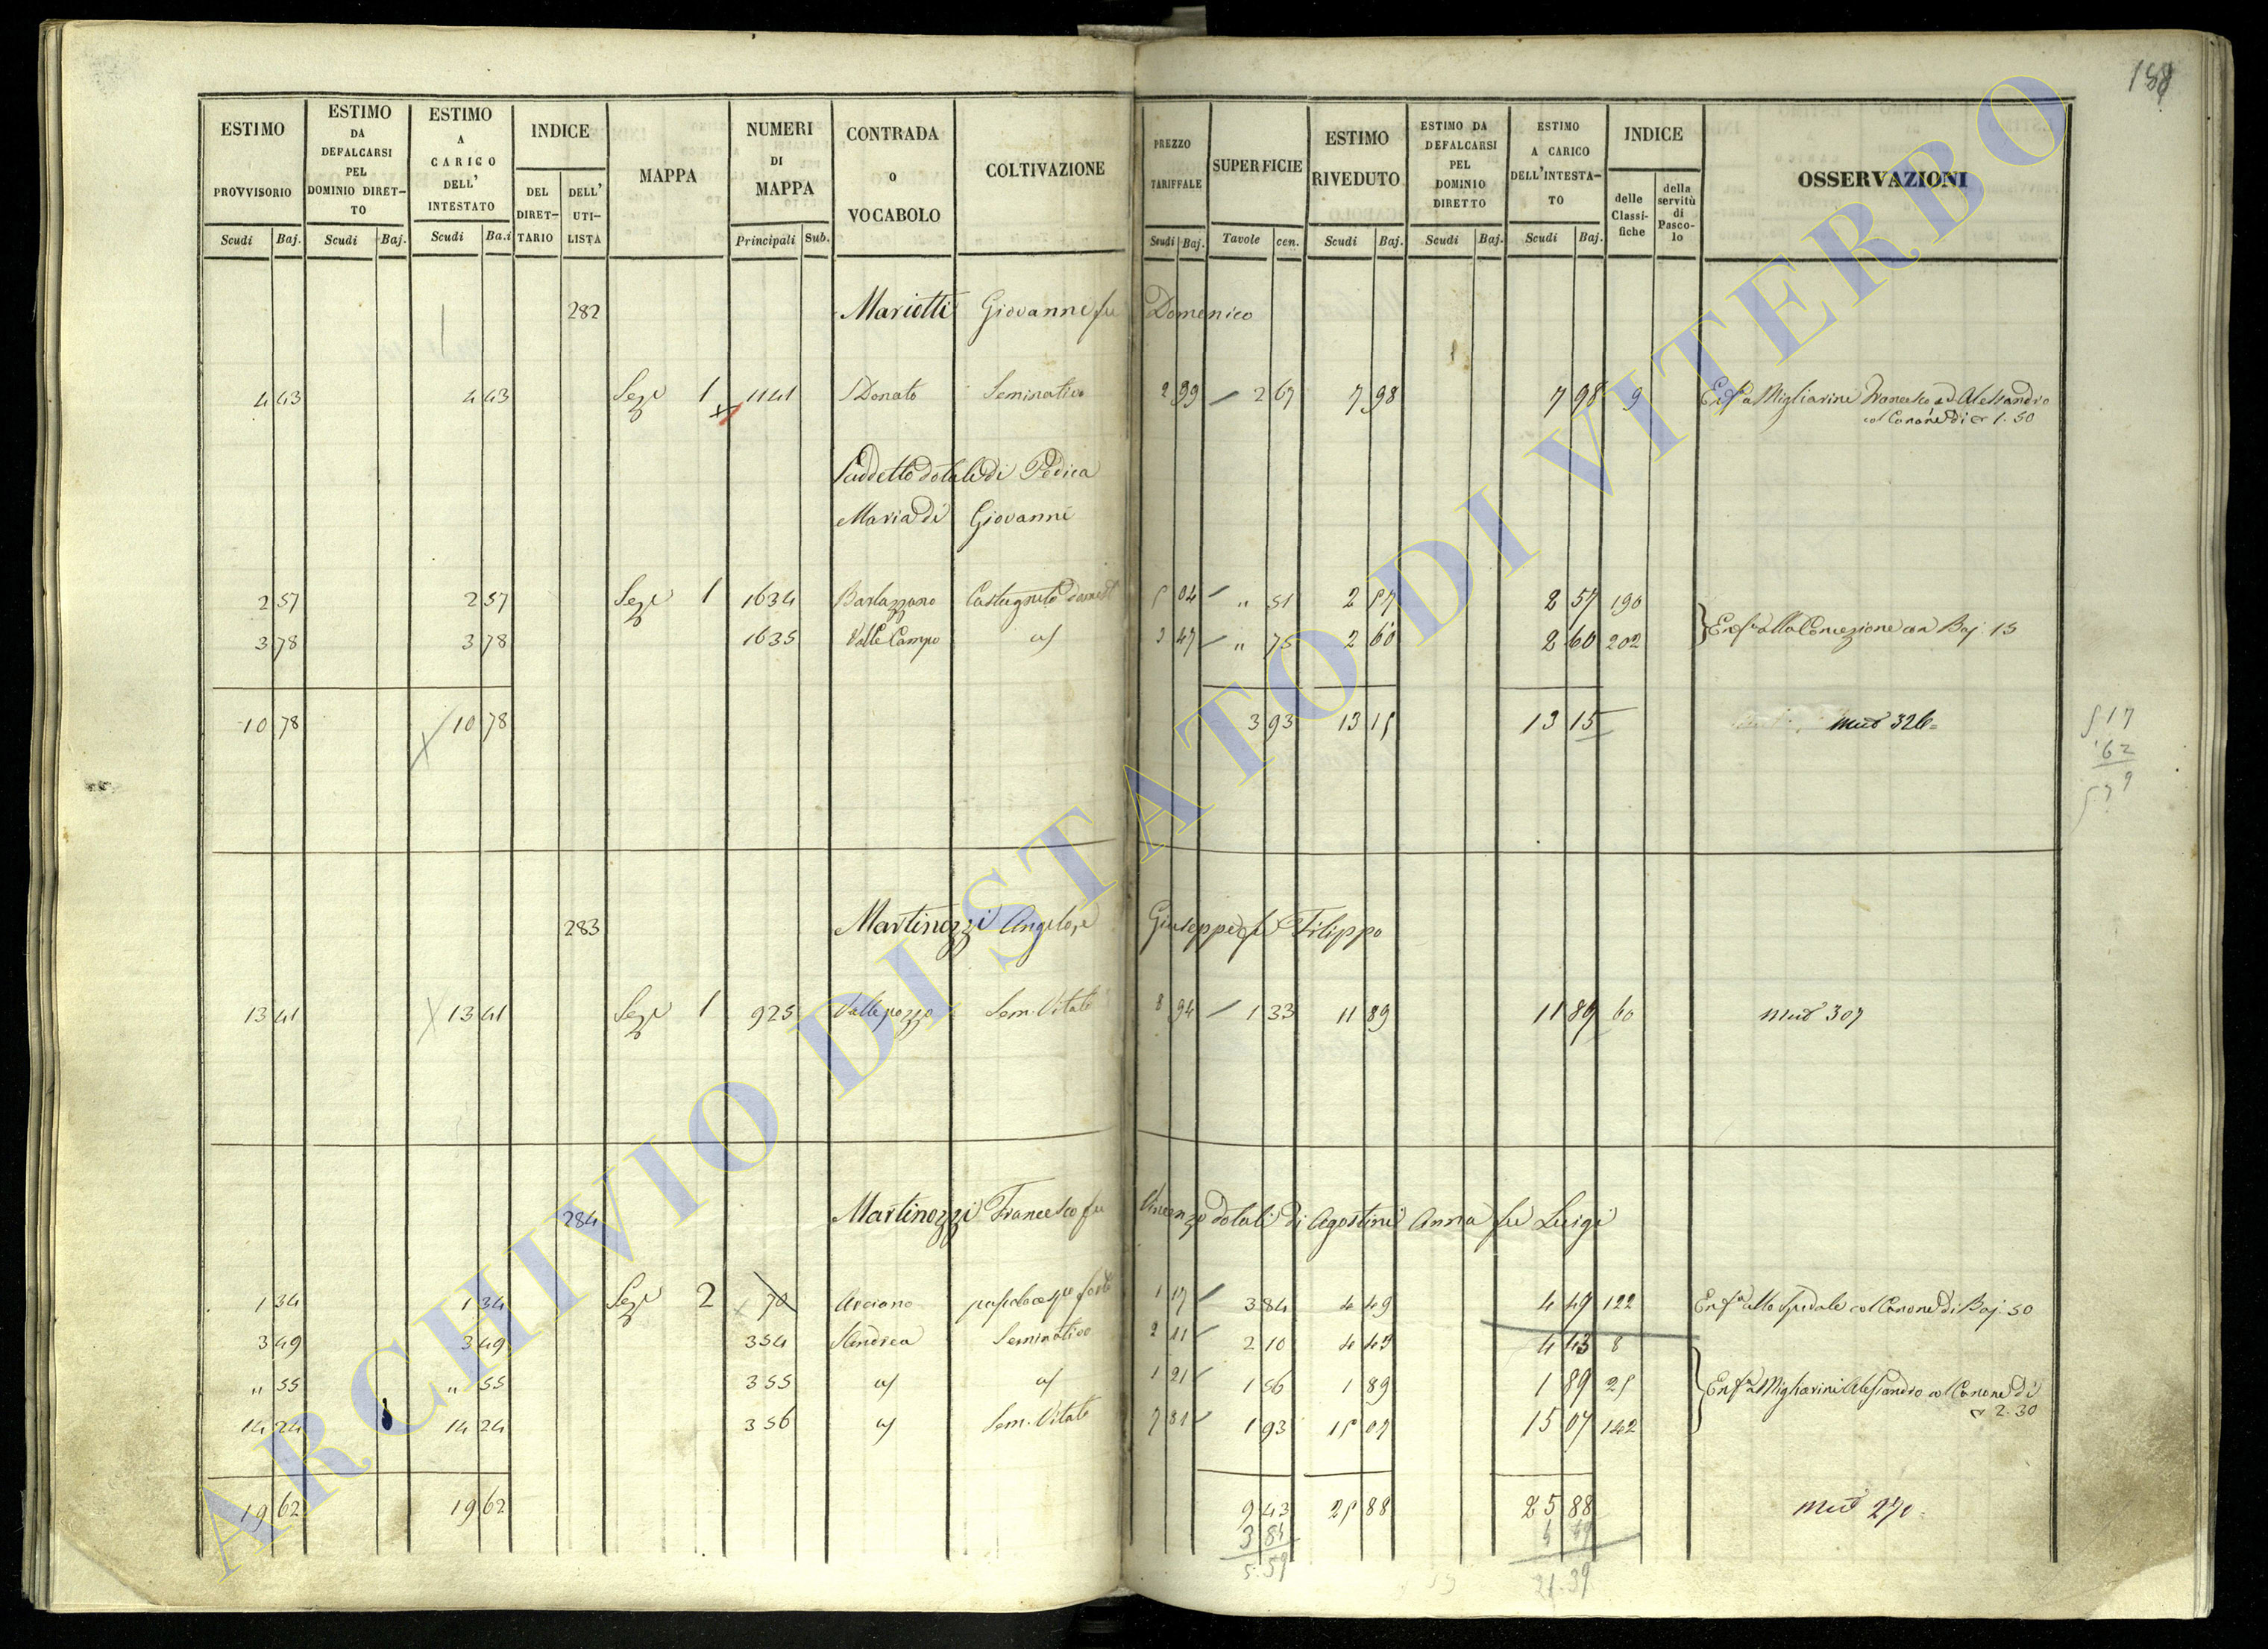 188
ESTIMO PROVVISORIO Scudi Baj.
ESTIMO DA DEFALCARSI PEL DOMINIO DIRET–TO Scudi Baj.
ESTIMO A CARICO DELL' INTESTATO Scudi Ba.i
INDICE DEL DIRET–TARIO DELL' UTI–LISTA
MAPPA
NUMERI DI MAPPA Principali Sub.
CONTRADA O VOCABOLO
COLTIVAZIONE
PREZZO TARIFFALE Scudi Baj.
SUPERFICIE Tavole cen.
ESTIMO RIVEDUTO Scudi Baj.
ESTIMO DA DEFALCARSI PEL DOMINIO DIRETTO Scudi Baj.
ESTIMO A CARICO DELL'INTESTA–TO Scudi Baj.
INDICE delle Classi–fiche della servitù di Pasco–lo
OSSERVAZIONI
282 Mariotti Giovanni fu Domenico
4 43 4 43 Sez.e 1 1141 S Donato Seminativo 2 99 2 67 7 98 7 98 9 Enf.a a Migliarini Francesco ed Alessandro
col Canone di 1.50
Suddetto dotale di Pedica
Maria di Giovanni
2 57 2 57 Sez.e 1 1634 Barlazzano Castagneto domest 5 04 " 51 2 57 2 57 190
3 78 3 78 1635 Valle Campo a/ 3 47 " 75 2 60 2 60 202 Enf.a alla Concezione Baj. 15
10 78 10 78 3 93 13 15 13 15 mut 326=
5 17
62
5 79
283 Martinozzi Angelo, e Giuseppe fu Filippo
13 41 13 41 Sez.e 1 925 Valle pozzo Sem. Vitato 8 94 1 33 11 89 11 89 60 mut 307
284 Martinozzi Francesco fu Vincenzo dotali di Agostini Anna fu Luigi
1 34 1 34 Sez.e 2 70 Arciano 1 17 3 84 4 49 4 49 122 Enf.a allo Spedale col Canone di Baj. 50
3 49 3 49 354 S Andrea Seminativo 2 11 2 10 4 43 4 43 8
" 55 " 55 355 a/ a/ 1 21 1 56 1 89 1 89 25 Enf.a Migliarini Alessandro col Canone di
2.30
14 24 14 24 356 a/ Sem. Vitato 7 81 1 93 15 07 15 07 142
19 62 19 62 9 43 25 88 25 88 mut 270=
3 84 4 49
5.59 21.39
ARCHIVIO DI STATO DI VITERBO